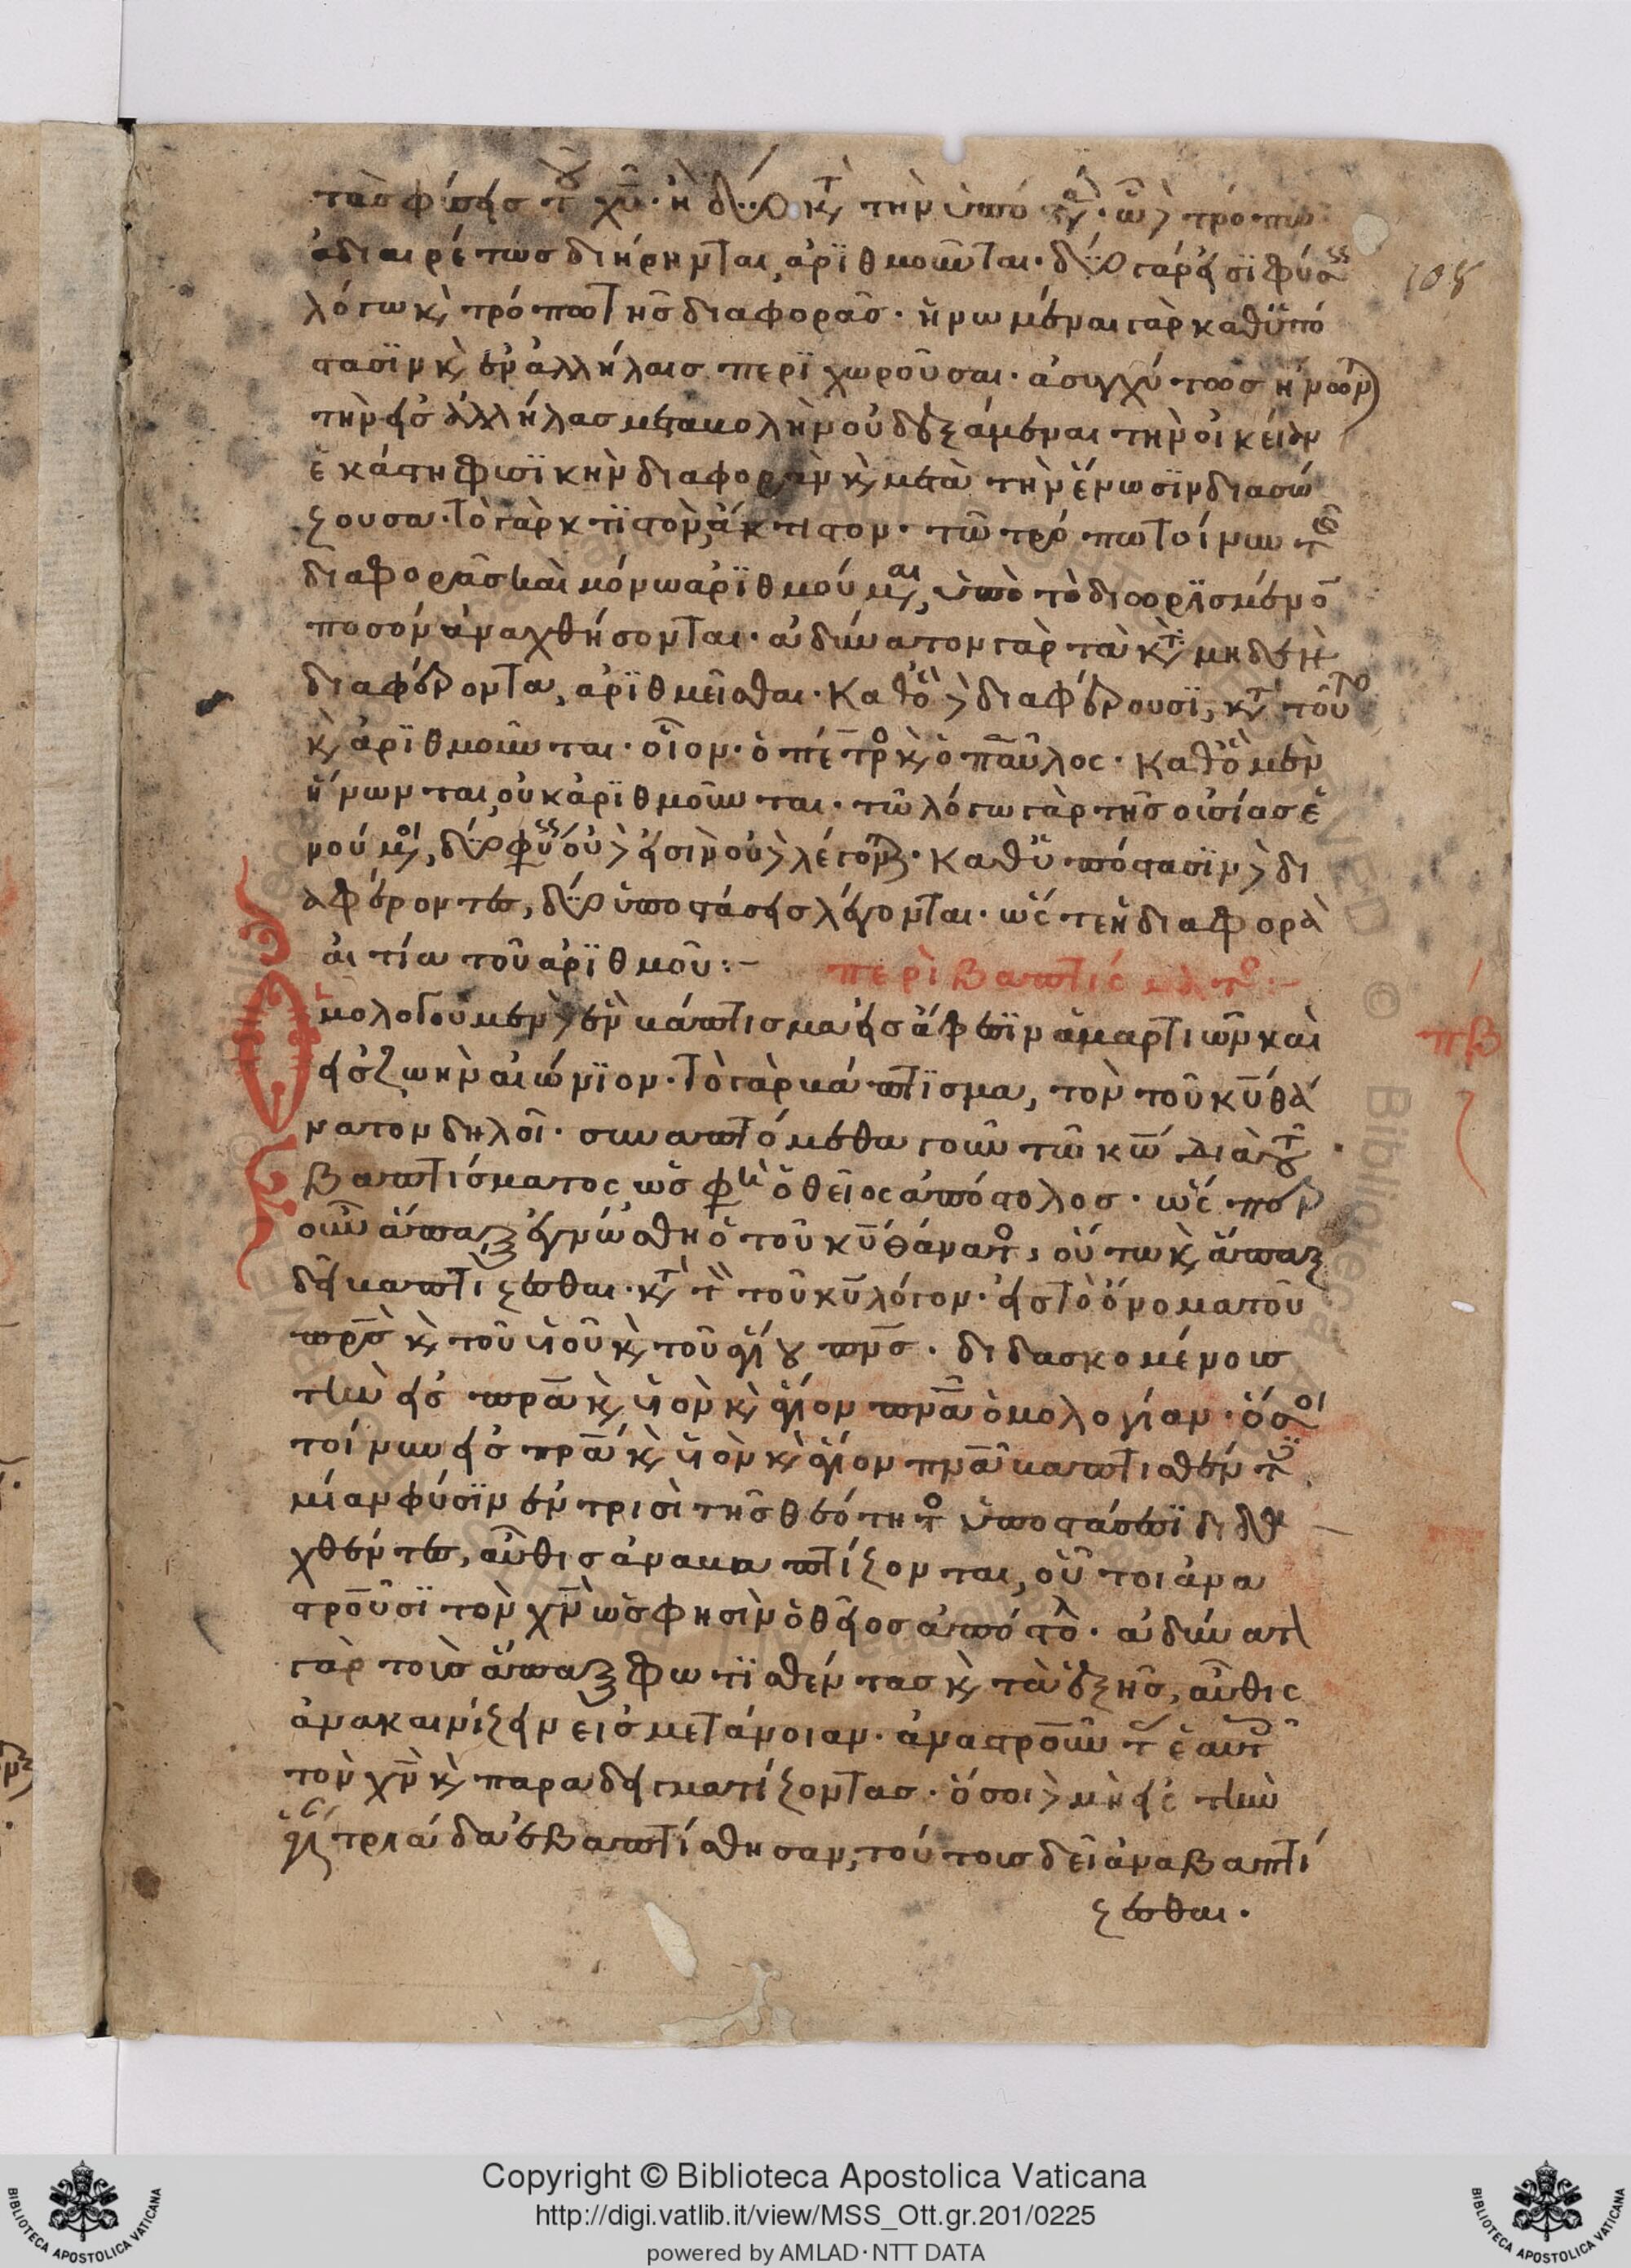 τὰς φύσεις τοῦ χυ· ἢ δύο κατὰ τὴν ὑπό
ἀδιαιρέτως διήρηνται, ἀριθμοῦνται· δύο γάρ εἰσι φύσεις
λόγω καὶ τρόπω τῆς διαφορᾶς· ἡνωμέναι γὰρ καθ' ὑπό
στασιν καὶ ἐν ἀλλήλαις περιχωροῦσαι· ἀσυγχύτως ἥνων
τὴν εἰς ἀλλήλας μεταβολὴν οὐ δεξάμεναι τὴν οἰκείαν
ἑκάστη φυσικὴν διαφορὰν καὶ μετὰ τὴν ἕνωσιν διασώ
ζουσα· τὸ γὰρ κτιστὸν, ἄκτιστον· τῶ τρόπω τοίνυν τῆς
διαφορᾶς καὶ μόνω ἀριθμούμεναι, ὑπὸ τὸ διωρισμένον
ποσὸν ἀναχθήσονται· ἀδύνατον γὰρ τὰ κατὰ μηδὲν
διαφέροντα, ἀριθμεῖσθαι· καθὸ δὲ διαφέρουσι, κατὰ τοῦτο
καὶ ἀριθμοῦνται· οἷον· ὁ πέτρος καὶ ὁ παῦλος· καθὸ μὲν
ἥνωνται, οὐκ ἀριθμοῦνται· τῶ λόγω γὰρ τῆς οὐσίας ἑ
νούμενοι, δύο φύσεις οὔτε εἰσὶν οὔτε λέγονται· καθ' ὑπόστασιν δὲ δι
αφέροντες, δύο ὑποστάσεις λέγονται· ὥστε ἡ διαφορὰ
αἰτία τοῦ ἀριθμοῦ:–
περὶ βαπτίσματος:–
πβ
Ὁμολογοῦμεν δὲ ἓν βάπτισμα εἰς ἄφεσιν ἁμαρτιῶν καὶ
εἰς ζωὴν αἰώνιον· τὸ γὰρ βάπτισμα, τὸν τοῦ κυ θά
νατον δηλοῖ· συνθαπτόμεθα γοῦν τῶ κω διὰ τοῦ
βαπτίσματος ὥς φησιν ὁ θεῖος ἀπόστολος· ὥσπερ
οὖν ἅπαξ ἐγνώσθη ὁ τοῦ κυ θάνατος, οὕτω καὶ ἅπαξ
δεῖ βαπτίζεσθαι· κατὰ τὸν τοῦ κυ λόγον· εἰς τὸ ὄνομα τοῦ
πρς καὶ τοῦ υἱοῦ καὶ τοῦ ἁγίου πνς· διδασκομένοις
τὴν εἰς πρα καὶ υἱὸν καὶ ἅγιον πνα ὁμολογίαν· ὅσοι
τοίνυν εἰς πρα καὶ υἱὸν καὶ ἅγιον πνα βαπτισθέντες
μίαν φύσιν ἐν τρισὶ τῆς θεότητος ὑποστάσεσι διδα
χθέντες, αὖθις ἀναβαπτίζονται, οὗτοι ἀνα
στροῦσι τὸν χν ὥς φησὶν ὁ θεῖος ἀπόστολος· ἀδύνατον
γὰρ τοὺς ἅπαξ φωτισθέντας καὶ τὰ ἑξῆς, αὖθις
ἀνακαινίζειν εἰς μετάνοιαν· ἀναστροῦντας ἑαυτοῖς
τὸν χν καὶ παραδειγματίζοντας· ὅσοι δὲ μὴ εἰς τὴν
ἁγίαν τριάδα ἐβαπτίσθησαν, τούτοις δεῖ ἀναβαπτί
ζεσθαι·
Copyright © Biblioteca Apostolica Vaticana
http://digi.vatlib.it/view/MSS_Ott.gr.201/0225
powered by AMLAD·NTT DATA
BIBLIOTECA APOSTOLICA VATICANA
BIBLIOTECA APOSTOLICA VATICANA